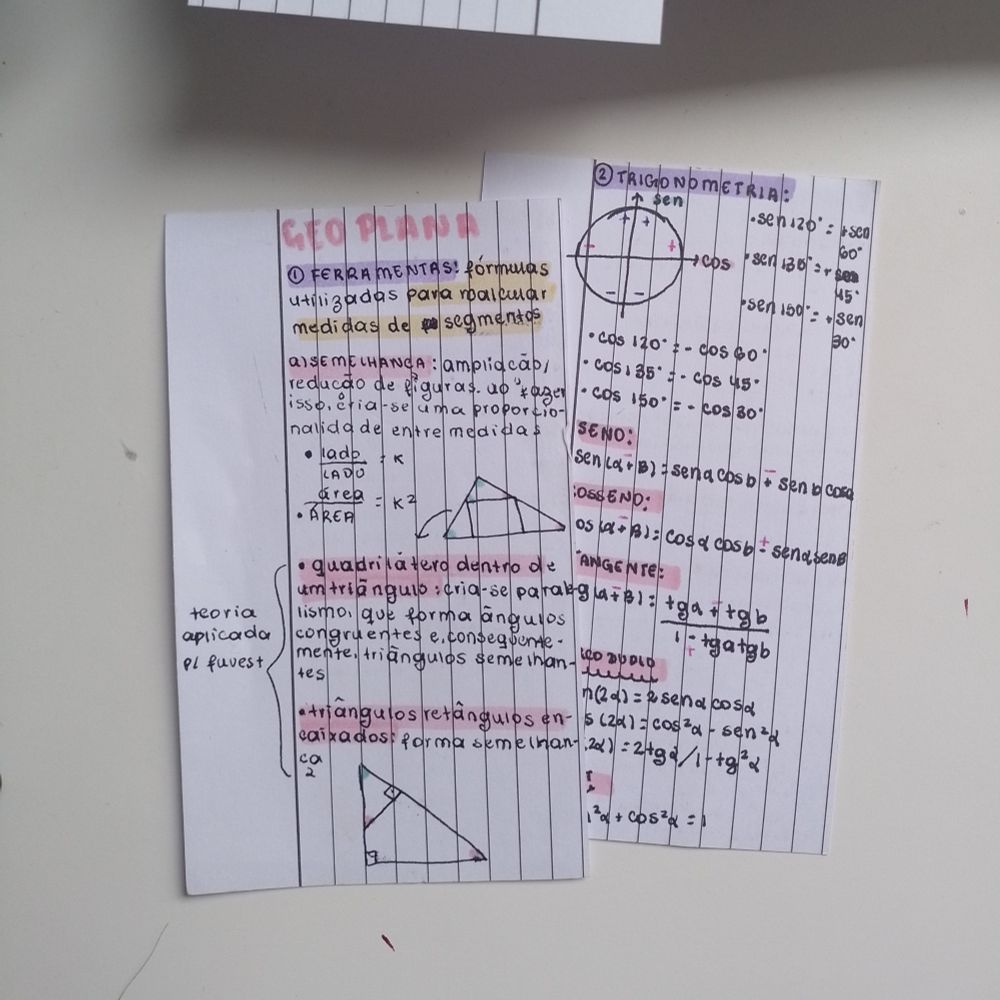 GEO PLANA
① FERRAMENTAS: fórmulas
utilizadas para calcular
medidas de segmentos
a) SEMELHANÇA: ampliação,
redução de figuras. ao fazer
isso, cria-se uma proporcio-
nalidade entre medidas
• lado/LADO = K
• área/ÁREA = K²
• quadrilátero dentro de
um triângulo: cria-se parale-
lismo, que forma ângulos
congruentes e, consequente-
mente, triângulos semelhan-
tes
teoria
aplicada
p/ fuvest
• triângulos retângulos en-
caixados: forma semelhan-
ça
② TRIGONOMETRIA:
sen
cos
+ +
- +
- -
• sen 120° = +sen
60°
• sen 135° = + sen
45°
• sen 150° = + sen
30°
• cos 120° = - cos 60°
• cos 135° = - cos 45°
• cos 150° = - cos 30°
SENO:
sen(α ∓ B) = sen a cos b ∓ sen b cos a
OSSENO:
os(α ∓ B) = cos α cos b ± sen a sen B
ANGENTE:
g(α ∓ B) = tga ∓ tgb / 1 ± tga tgb
CO DUPLO
n(2α) = 2 sen α cos α
s(2α) = cos²α - sen²α
2α) = 2tgα / 1 - tg²α
²α + cos²α = 1